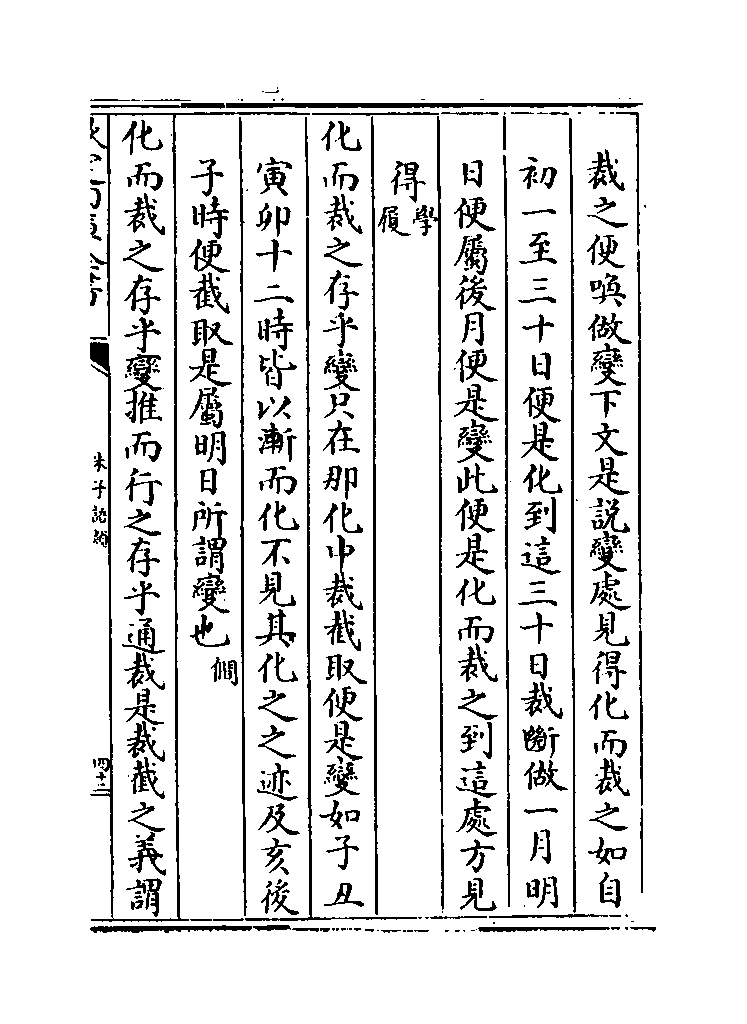 裁之便喚做變下文是説變處見得化而裁之如自
初一至三十日便是化到這三十日裁斷做一月明
日便屬後月便是變此便是化而裁之到這處方見
得學履
化而裁之存乎變只在那化中裁截取便是變如子丑
寅卯十二時皆以漸而化不見其化之之迹及亥後
子時便截取是屬明日所謂變也僩
化而裁之存乎變推而行之存乎通裁是裁截之義謂
朱子語類
四十三